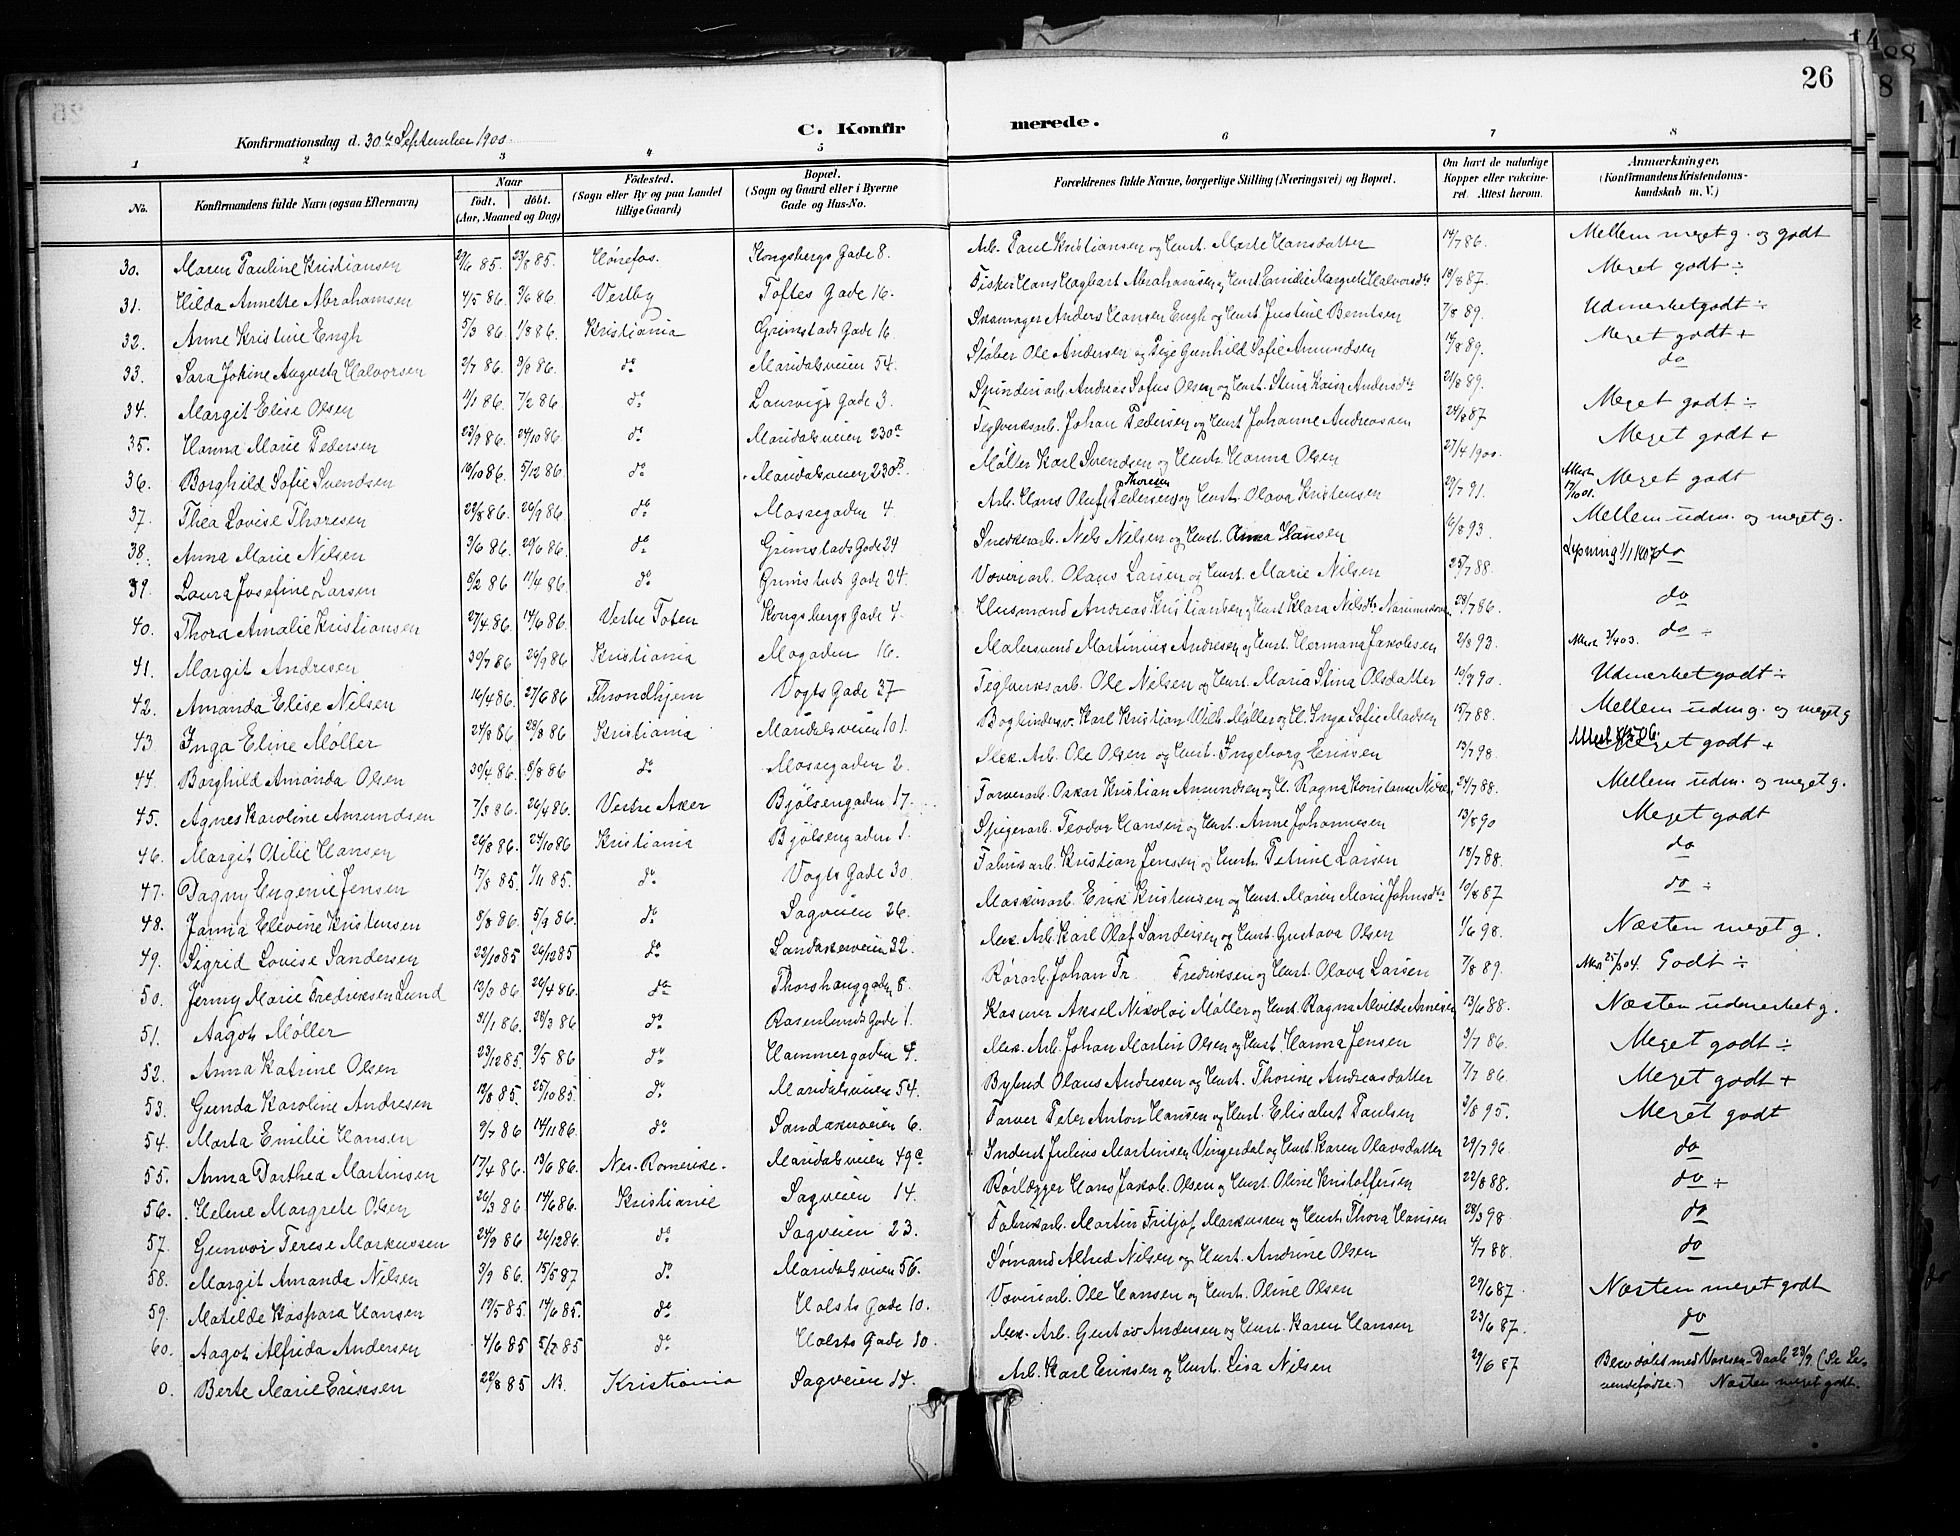 26
Konfirmationsdag d. 30te September 1900.
C. Konfirmerede.
1 2 3 4 5 6 7 8
No. Konfirmandens fulde Navn (ogsaa Efternavn) Naar født. døbt. (Aar, Maaned og Dag) Fødested. (Sogn eller By og paa Landet tillige Gaard) Bopæl. (Sogn og Gaard eller i Byerne Gade og Hus-No. Forældrenes fulde Navne, borgerlige Stilling (Næringsvei) og Bopæl. Om havt de naturlige Kopper eller vaccineret. Attest herom. Anmærkninger, (Konfirmandens Kristendomskundskab m. V.)
30. Maren Pauline Kristiansen 29/6 85. 23/8 85. Hønefos. Kongsbergs Gade 8. Arb. Paul Kristiansen og Hust. Marte Hansdatter 14/7 86. Mellem meget g. og godt
31. Hilda Annette Abrahamsen 4/5 86. 9/6 86. Vestby Toftes Gade 16. Fisker Hans Hagbart Abrahamsen og Hust Emilie Margrete Halvorsdtr 18/8 87. Meget godt ÷
32. Anne Kristine Engh 5/3 86. 1/8 86. Kristiania Grimstads Gade 16 Skomager Anders Hansen Engh og Hust Justine Berntsen 7/8 89. Udmerket godt ÷
33. Sara Jokine Augusta Halvorsen 2/7 86. 3/8 86. do Maridalsveien 54. Støber Ole Andersen og Pige Gunhild Sofie Amundsen 13/8 89. Meget godt +
34. Margit Elise Olsen 4/1 86. 7/2 86 do Laurvigs Gade 3. Spinderiarb. Andreas Sofus Olsen og Hust. Stina Kaisa Andersdtr 21/8 89. do
35. Hanna Marie Pedersen 23/9 86. 24/10 86. do Maridalsveien 230a Teglverksarb. Johan Pedersen og Hust Johanne Andreassen 24/8 87 Meget godt ÷
36. Borghild Sofie Svendsen 19/10 86. 5/12 86. do Maridalsveien 230B. Møller Karl Svendsen og Hust. Hanna Olsen 27/4 1900. Meget godt +
37. Thea Lovise Thoresen 22/8 86. 26/9 86. do Mossegaden 4 Arb. Hans Oluf Pedersen Thoresen og Hust. Olava Kristensen 29/7 91. Attest 17/10 01. Meget godt
38. Anna Marie Nilsen 3/6 86. 29/6 86. do Grimstads Gade 24 Snedkerarb. Nels Nilsen og Hust. Anna Hansen 16/8 93. Mellem udm. og meget g.
39. Laura Josefine Larsen 5/2 86 11/4 86. do Grimstads Gade 24. Væveriarb. Olaus Larsen og Hust. Marie Nilsen 25/7 88. Lysning 1/1 1907 do
40. Thora Amalie Kristiansen 27/4 86. 14/6 86. Vestre Toten Kongsbergs Gade 4. Husmand Andreas Kristiansen og Hust Klara Nilsdtr 28/7 86. do
41. Margit Andresen 30/7 86 26/9 86 Kristiania Mogaden 16. Malersvend Martinius Andresen og Hust. Hermana Jakobsen 2/8 93. 3/4 03. do ÷
42. Amanda Elise Nilsen 16/4 86. 27/6 86 Throndhjem Vogts Gade 37 Teglverksarb. Ole Nilsen og Hust. Maria Stina Olsdatter 10/9 90. Udmerket godt ÷
43. Inga Eline Møller 24/3 86 29/8 86 Kristiania Maridalsveien 101. Bogbindersv. Karl Kristian Wilh. Møller og H. Inga Sofie Madsen 15/7 88. Mellem udm g. og meget g
44. Borghild Amanda Olsen 30/4 86. 8/8 86 do Mossegaden 2. Mek. Arb. Ole Olsen og Hust. Ingeborg Eriksen 13/7 98. Meget godt +
45. Agnes Karoline Amundsen 7/3 86. 26/4 86. Vestre Aker Bjølsengaden 17. Farverarb. Oskar Kristian Amundsen og H. Ragna Konstanse 24/7 88. Mellem udm. og meget g.
46. Margit Otilie Hansen 26/8 86. 24/10 86 Kristiania Bjølsengaden 1. Spigerarb. Teodor Hansen og Hust. Anne Johannesen 13/8 90 Meget godt
47. Dagny Eugenie Jensen 17/8 85. 1/11 85. do Vogts Gade 30. Fabrikarb. Kristian Jensen og Hust. Petrine Larsen 18/7 88. do
48. Janna Elevine Kristensen 8/8 86. 5/9 86. do Sagveien 26. Maskinarb. Erik Kristensen og Hust. Maren Marie Johnsdtr 10/8 87 do ÷
49. Sigrid Lovise Sandersen 22/10 85 26/12 85 do Sandakerveien 32. Mek. Arb. Karl Olaf Sandersen og Hust. Gustava Olsen 1/6 98. Næsten meget g.
50. Jenny Marie Fredriksen Lund 13/3 86 26/4 86. do Thorshauggaden 8. Rørarb. Johan Fr. Fredriksen og Hust. Olava Larsen 7/8 89. Godt ÷
51. Aagot Møller 31/1 86. 28/3 86 do Rosenlunds Gade 1. Kaserer Aksel Nikolai Møller og Hust. Ragna Alvilde Arnesen 13/6 88. Næsten udmerket g.
52. Anna Katrine Olsen 23/12 85. 9/5 86 do Hammergaden 4. Mek. Arb. Johan Martin Olsen og Hust. Hanna Jensen 3/7 86. Meget godt ÷
53. Gunda Karoline Andresen 19/8 85. 25/10 85. do Maridalsveien 54. Bybud Olaus Andresen og Hust. Thorine Andreasdatter 7/7 86. Meget godt +
54. Marta Emilie Hansen 9/7 86 14/11 86. do Sandakerveien 6. Farver Peter Anton Hansen og Hust. Elisabet Paulsen 3/8 95. Meget godt
55. Anna Dorthea Martinsen 17/4 86. 13/6 86. Nes. Romerike. Maridalsveien 49c Inderst Julius Martinsen Vingerdal og Hust Karen Olavsdatter 29/7 96 do
56. Helene Margrete Olsen 26/3 86 14/6 86. Kristiania Sagveien 14. Rørlægger Hans Jakob Olsen og Hust. Oline Kristoffersen 22/8 88. do ÷
57. Gunvor Terese Markussen 24/9 86 26/12 86. do Sagveien 23. Fabrikarb. Martin Fritjof Markussen og Hust. Thora Hansen 28/3 98 do
58. Margit Amanda Nilsen 3/9 86. 15/5 87 do Maridalsveien 56. Sømand Alfred Nilsen og Hust. Andrine Olsen 4/7 88. do
59. Matilde Kaspara Hansen 19/5 85. 14/6 85. do Holsts Gade 10. Væveriarb. Ole Hansen og Hust. Oline Olsen 29/6 87. Næsten meget godt
60. Aagot Alfrida Andersen 4/6 85 5/7 85 do Holsts Gade 10. Mek. Arb. Gustav Andersen og Hust. Karen Hansen 23/6 87. do
0. Berte Marie Eriksen 22/8 85 NB. Kristiania Sagveien 14. Arb. Karl Eriksen og Hust. Lisa Nilsen 29/6 87 Bekvdøbt med Voksen-Daab 23/9 (Se Levendefødte.) Næsten meget godt.